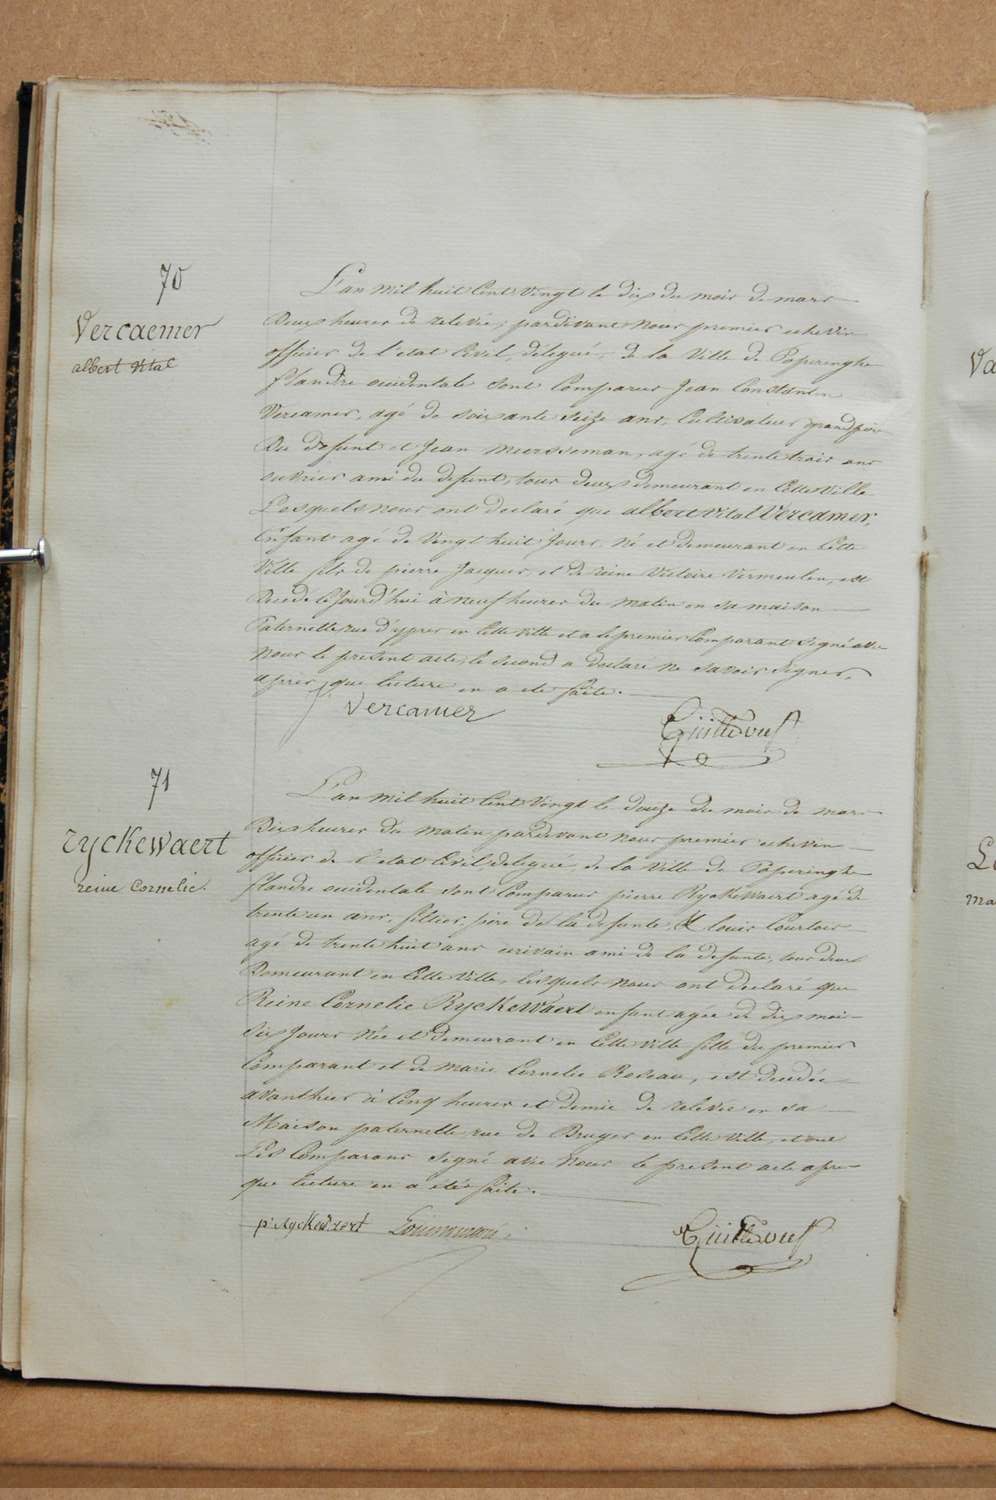 70
Vercaemer
albert vital
L'an mil huit cent vingt le dix du mois de mars
deux heures de relevée, pardevant nous premier echevin
officier de l'etat civil, delegué, de la ville de Poperinghe
flandre occidentale sont comparus Jean Constantin
Vercamer, agé de soixante seize ans, cultivateur grandpère
du defunt et Jean Meersseman, agé de trente trois ans
ouvrier ami du defunt, tous deux demeurant en cette ville
Lesquels nous ont declaré que albert vital Vercamer,
Enfant agé de vingt huit jours né et demeurant en cette
ville fils de pierre Jacques, et de reine Victoire Vermeulen, est
decedé cejourd'hui à neuf heures du matin en sa maison
Paternelle rue d'ypres en cette ville et a le premier comparant signé avec
nous le present acte, le second a declaré ne savoir signer,
apres que lecture en a eté faite.
Vercamer
71
ryckewaert
reine cornelie.
L'an mil huit cent vingt le douze du mois de mars
dix heures du matin, pardevant nous premier echevin
officier de l'etat civil, delegué, de la ville de Poperinghe
flandre occidentale sont comparus pierre Ryckewaert agé de
trente un ans, sellier, père de la defunte, & louis Courtois
agé de trente huit ans ecrivain ami de la defunte, tous deux
Demeurant en cette ville, lesquels nous ont declaré que
Reine Cornelie Ryckewaert enfant agée de dix mois
six jours née et demeurant en cette ville fille du premier
comparant et de marie Cornelie, est decedée
avanthier à cinq heures et demie de relevée en sa
Maison paternelle rue de Bruges en cette ville, et ont
Les comparans signé avec nous le present acte apres
que lecture en a etée faite.
p. Ryckewaert